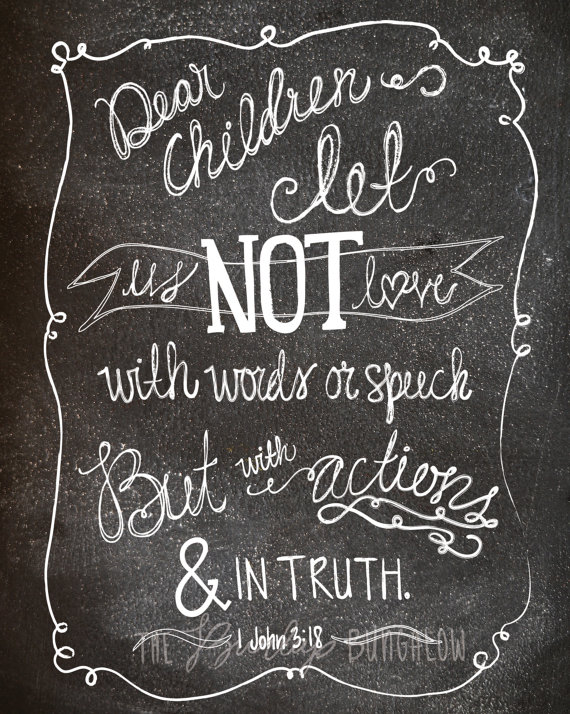 Dear
children
let
us NOT love
with words or speech
But with actions
& IN TRUTH.
1 John 3:18
THE Burlap BUNGALOW